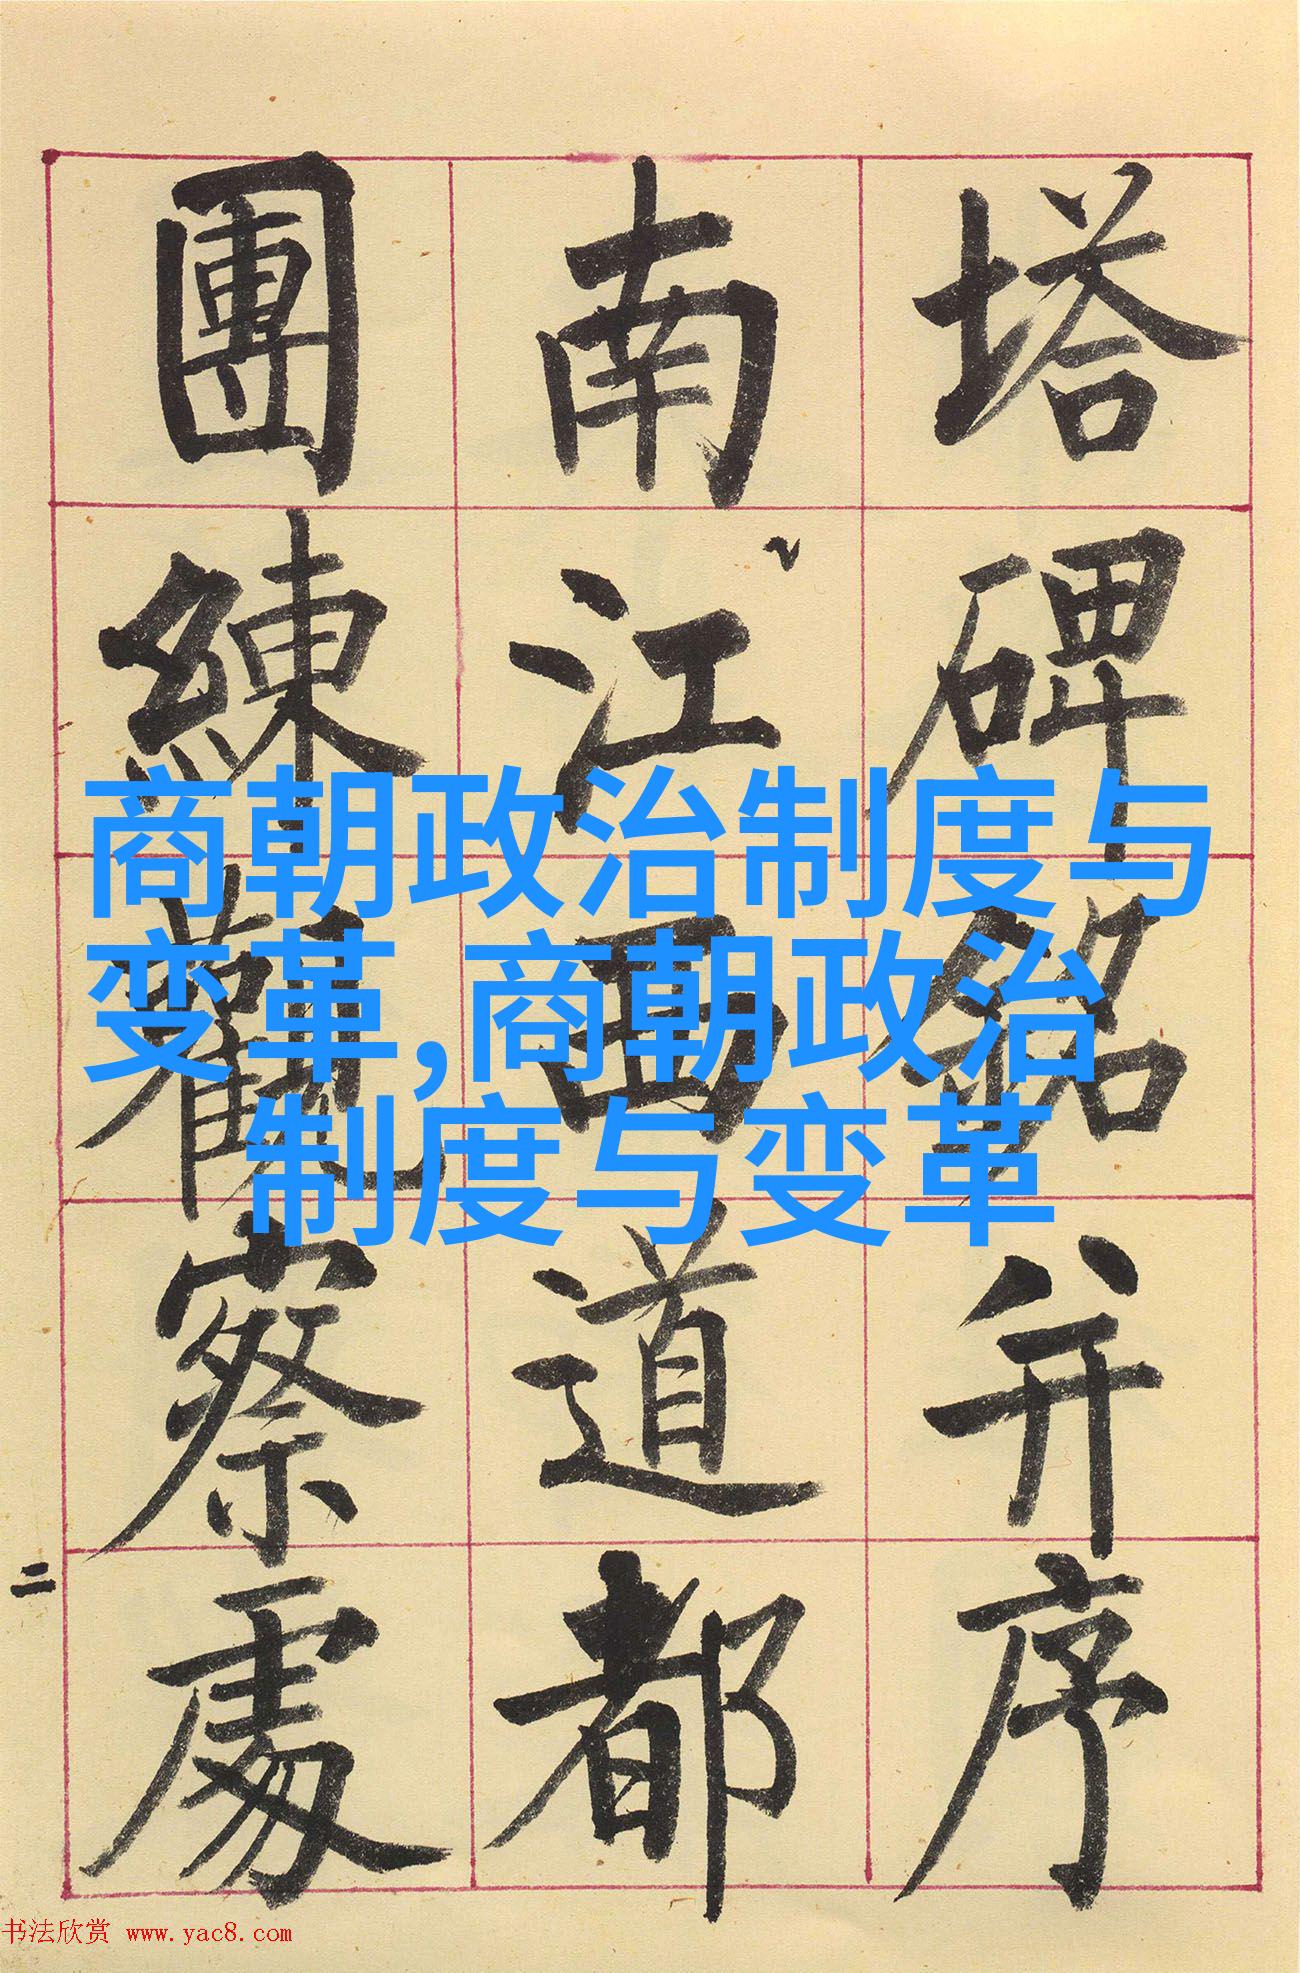 塔碑銘并序
南江西道都
團練觀察處
二
商朝政治制度与
变革,商朝政治
制度与变革
书法欣赏 www.yac8.com